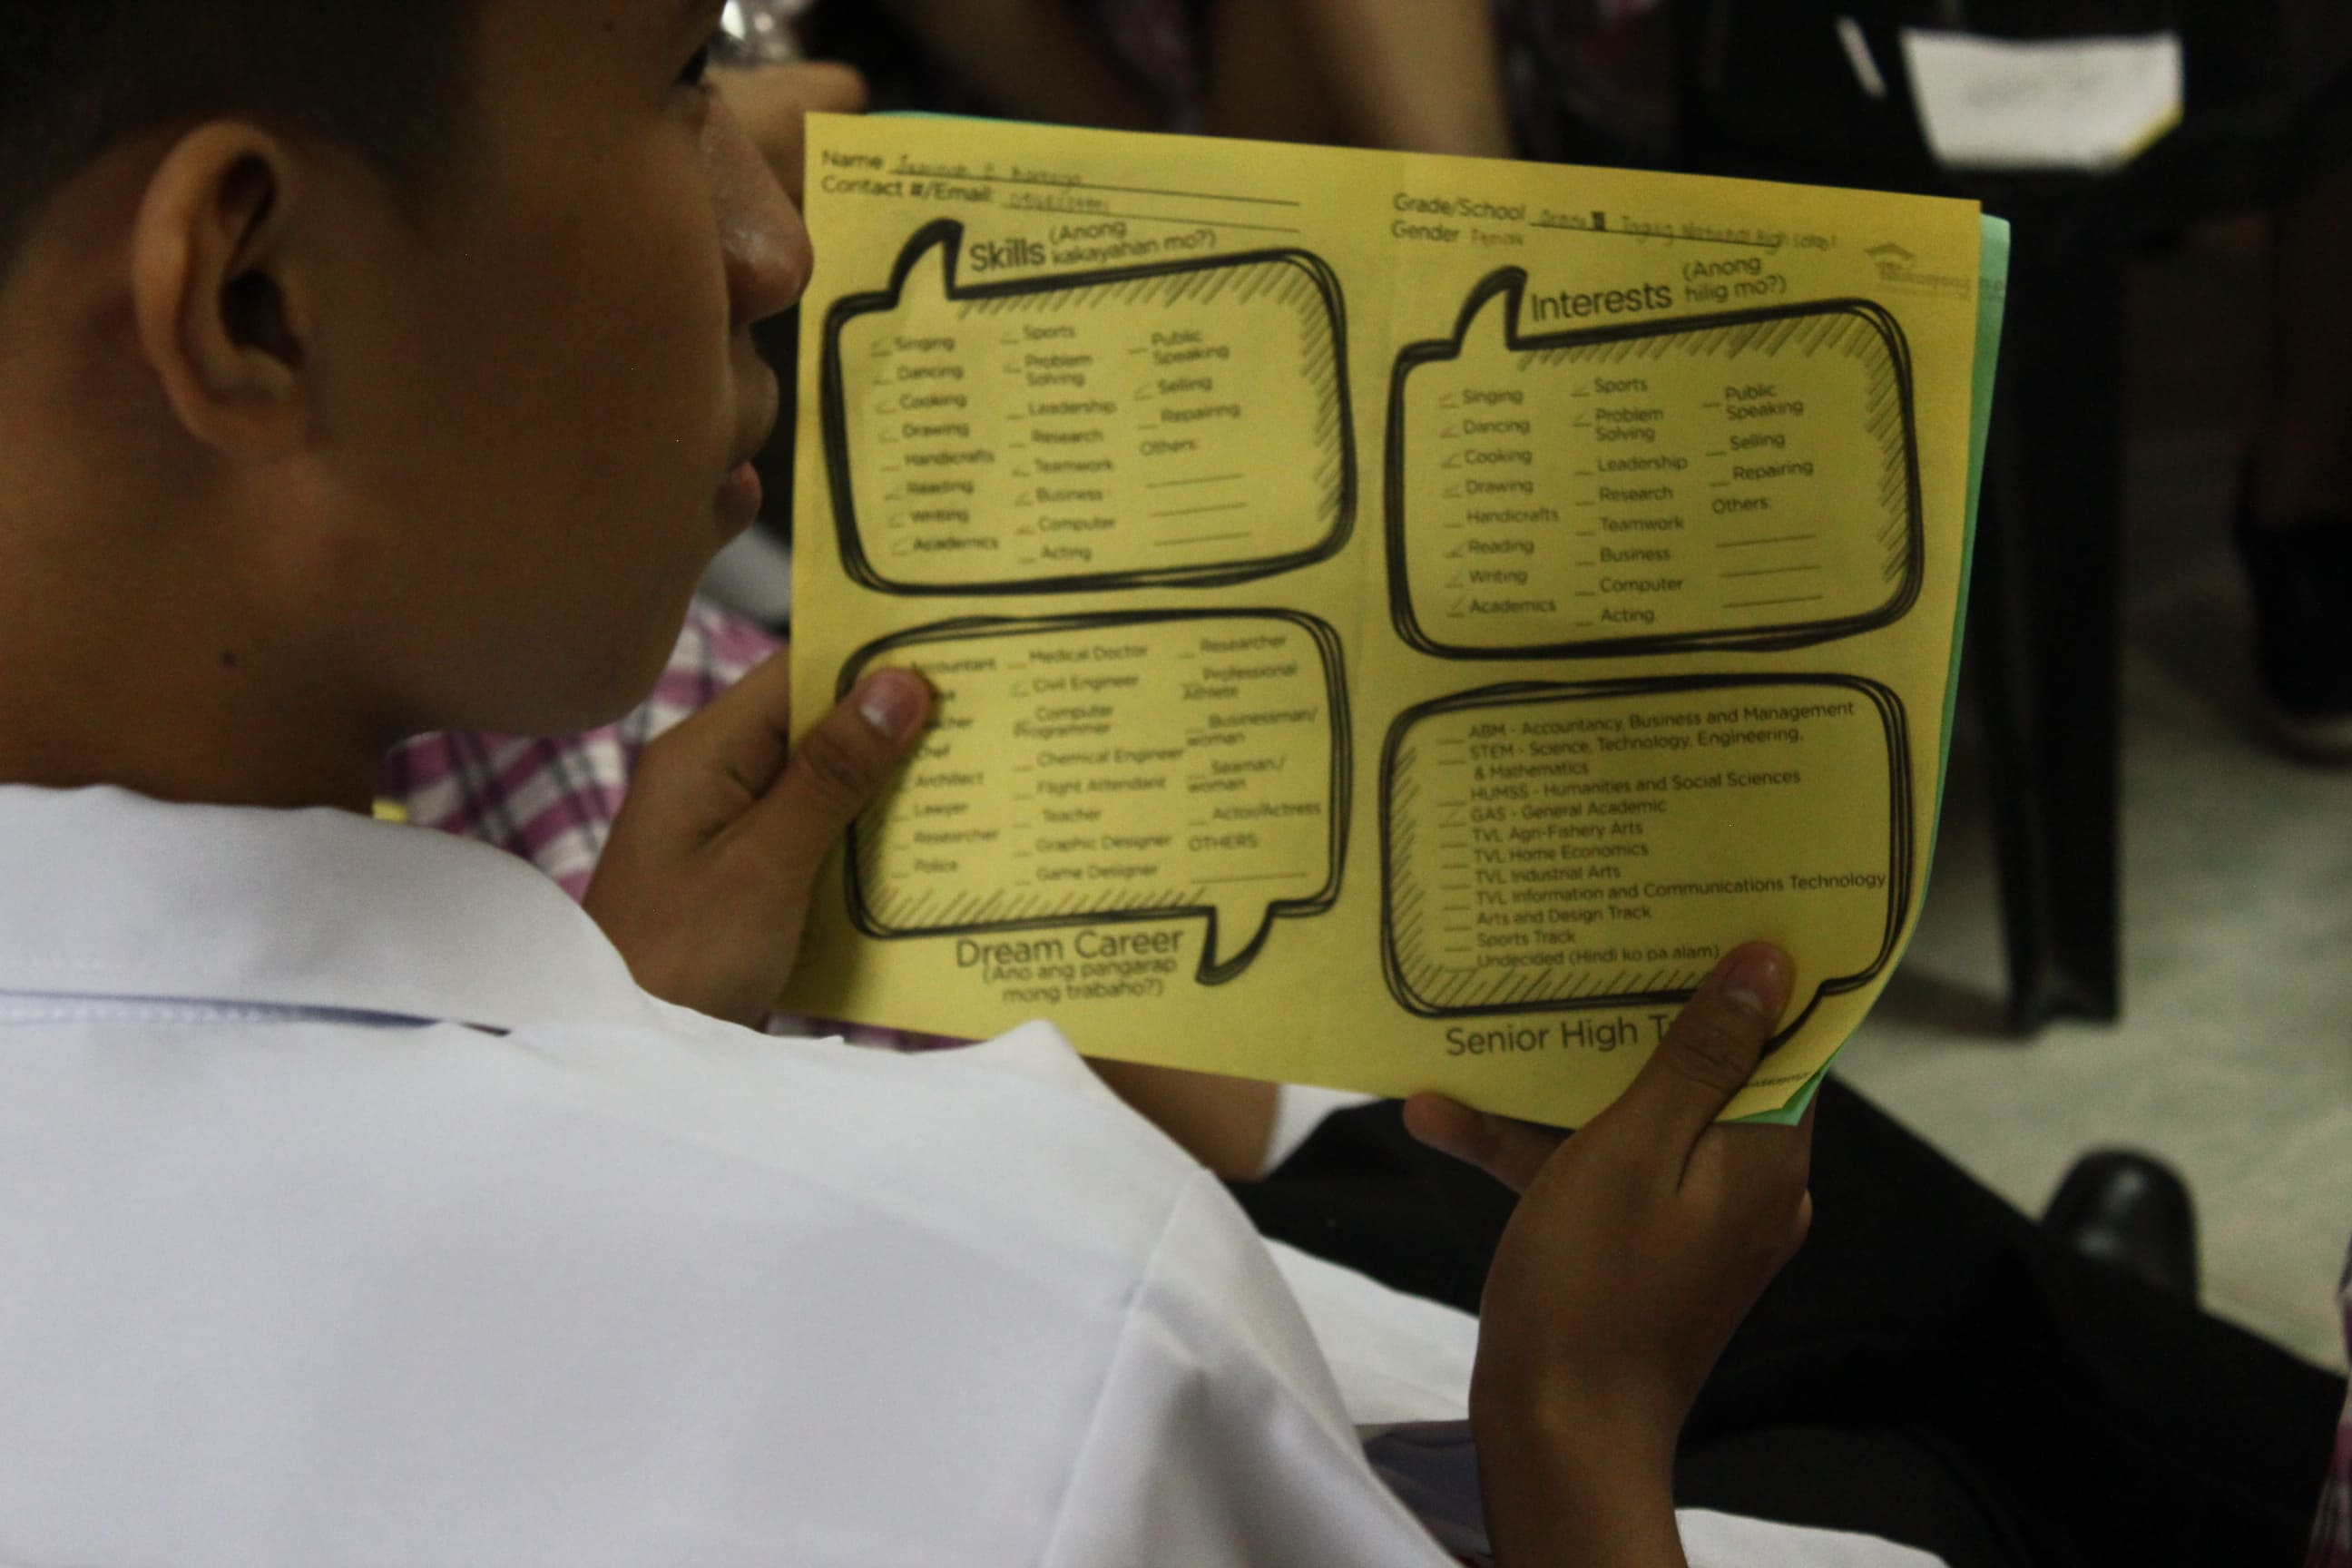 Name
Contact #/Email:
Grade/School
Gender Female
Skills (Anong
kakayahan mo?)
Singing
Dancing
Cooking
Drawing
Handicrafts
Reading
Writing
Academics
Sports
Problem
Solving
Leadership
Research
Teamwork
Business
Computer
Acting
Public
Speaking
Selling
Repairing
Others:
Interests (Anong
hilig mo?)
Singing
Dancing
Cooking
Drawing
Handicrafts
Reading
Writing
Academics
Sports
Problem
Solving
Leadership
Research
Teamwork
Business
Computer
Acting
Public
Speaking
Selling
Repairing
Others:
Accountant
Chef
Architect
Lawyer
Researcher
Police
Medical Doctor
Civil Engineer
Computer
Programmer
Chemical Engineer
Flight Attendant
Teacher
Graphic Designer
Game Designer
Researcher
Professional
Athlete
Businessman/
woman
Seaman/
woman
Actor/Actress
OTHERS:
Dream Career
(Ano ang pangarap
mong trabaho?)
ABM - Accountancy, Business and Management
STEM - Science, Technology, Engineering,
& Mathematics
HUMSS - Humanities and Social Sciences
GAS - General Academic
TVL Agri-Fishery Arts
TVL Home Economics
TVL Industrial Arts
TVL Information and Communications Technology
Arts and Design Track
Sports Track
Undecided (Hindi ko pa alam)
Senior High